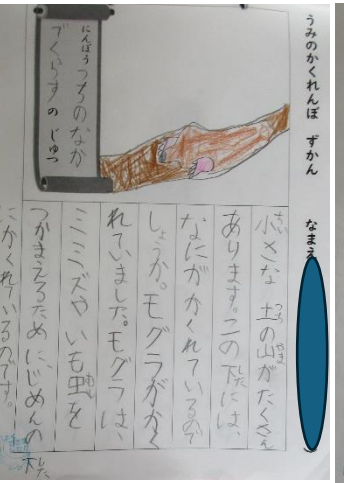 うみのかくれんぼ ずかん なまえ
にんぽう つちのなか
でくらすの じゅつ
小さな 土の山がたくさん
あります。この下には、
なにがかくれているので
しょうか。モグラがかく
れていました。モグラは、
ミミズや いも虫を
つかまえるために、じめんの下
にかくれているのです。